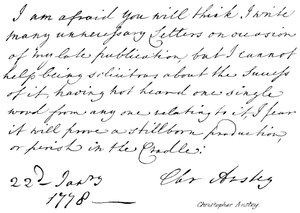 I am afraid you will think I write
many unnecessary Letters on occasion
of my late publication, but I cannot
help being solicitous about the Success
of it, having not heard one single
word from any one relating to it, I fear
it will prove a stillborn production,
or perish in the Cradle:
22d Jany
1778 —
Chr Anstey
Christopher Anstey